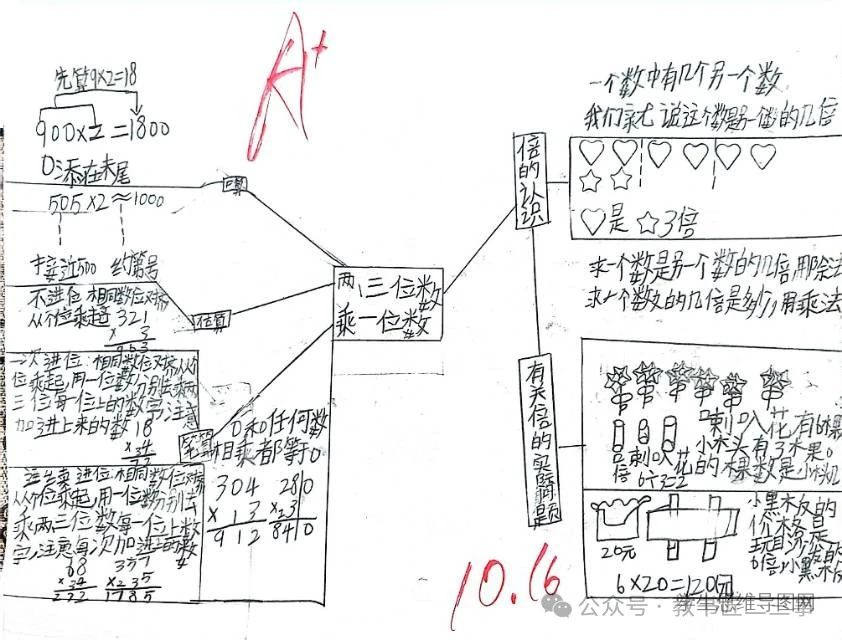 A+
先算9×2=18
900×2=1800
0添在末尾
505×2≈1000
接近500 约等号
口算
不进位:相同数位对齐
从个位乘起 321
× 3
963
估算
一次进位:相同数位对齐从个
位乘起,用一位数分别去乘两
三位每一位上的数字,注意
加进上来的数 18
× 4
72
笔算
连续进位:相同数位对齐
从个位乘起,用一位数分别去
乘两三位数每一位上数
字,注意每次加进的数
68 357
0和任何数
相乘都等于0
304 280
× 3 × 3
912 840
两、三位数
乘一位数
倍的认识
一个数中有几个另一个数
我们就说这个数是另一个数的几倍
是 3倍
求一个数是另一个数的几倍用除法
求一个数的几倍是多少,用乘法
有关倍的实际问题
喇叭花有6棵
小木头有3木果
喇叭花的棵数是小木头
倍 6÷3=2
小黑板的
价格是
20元
6×20=120元
10.16
公众号
思维导图网